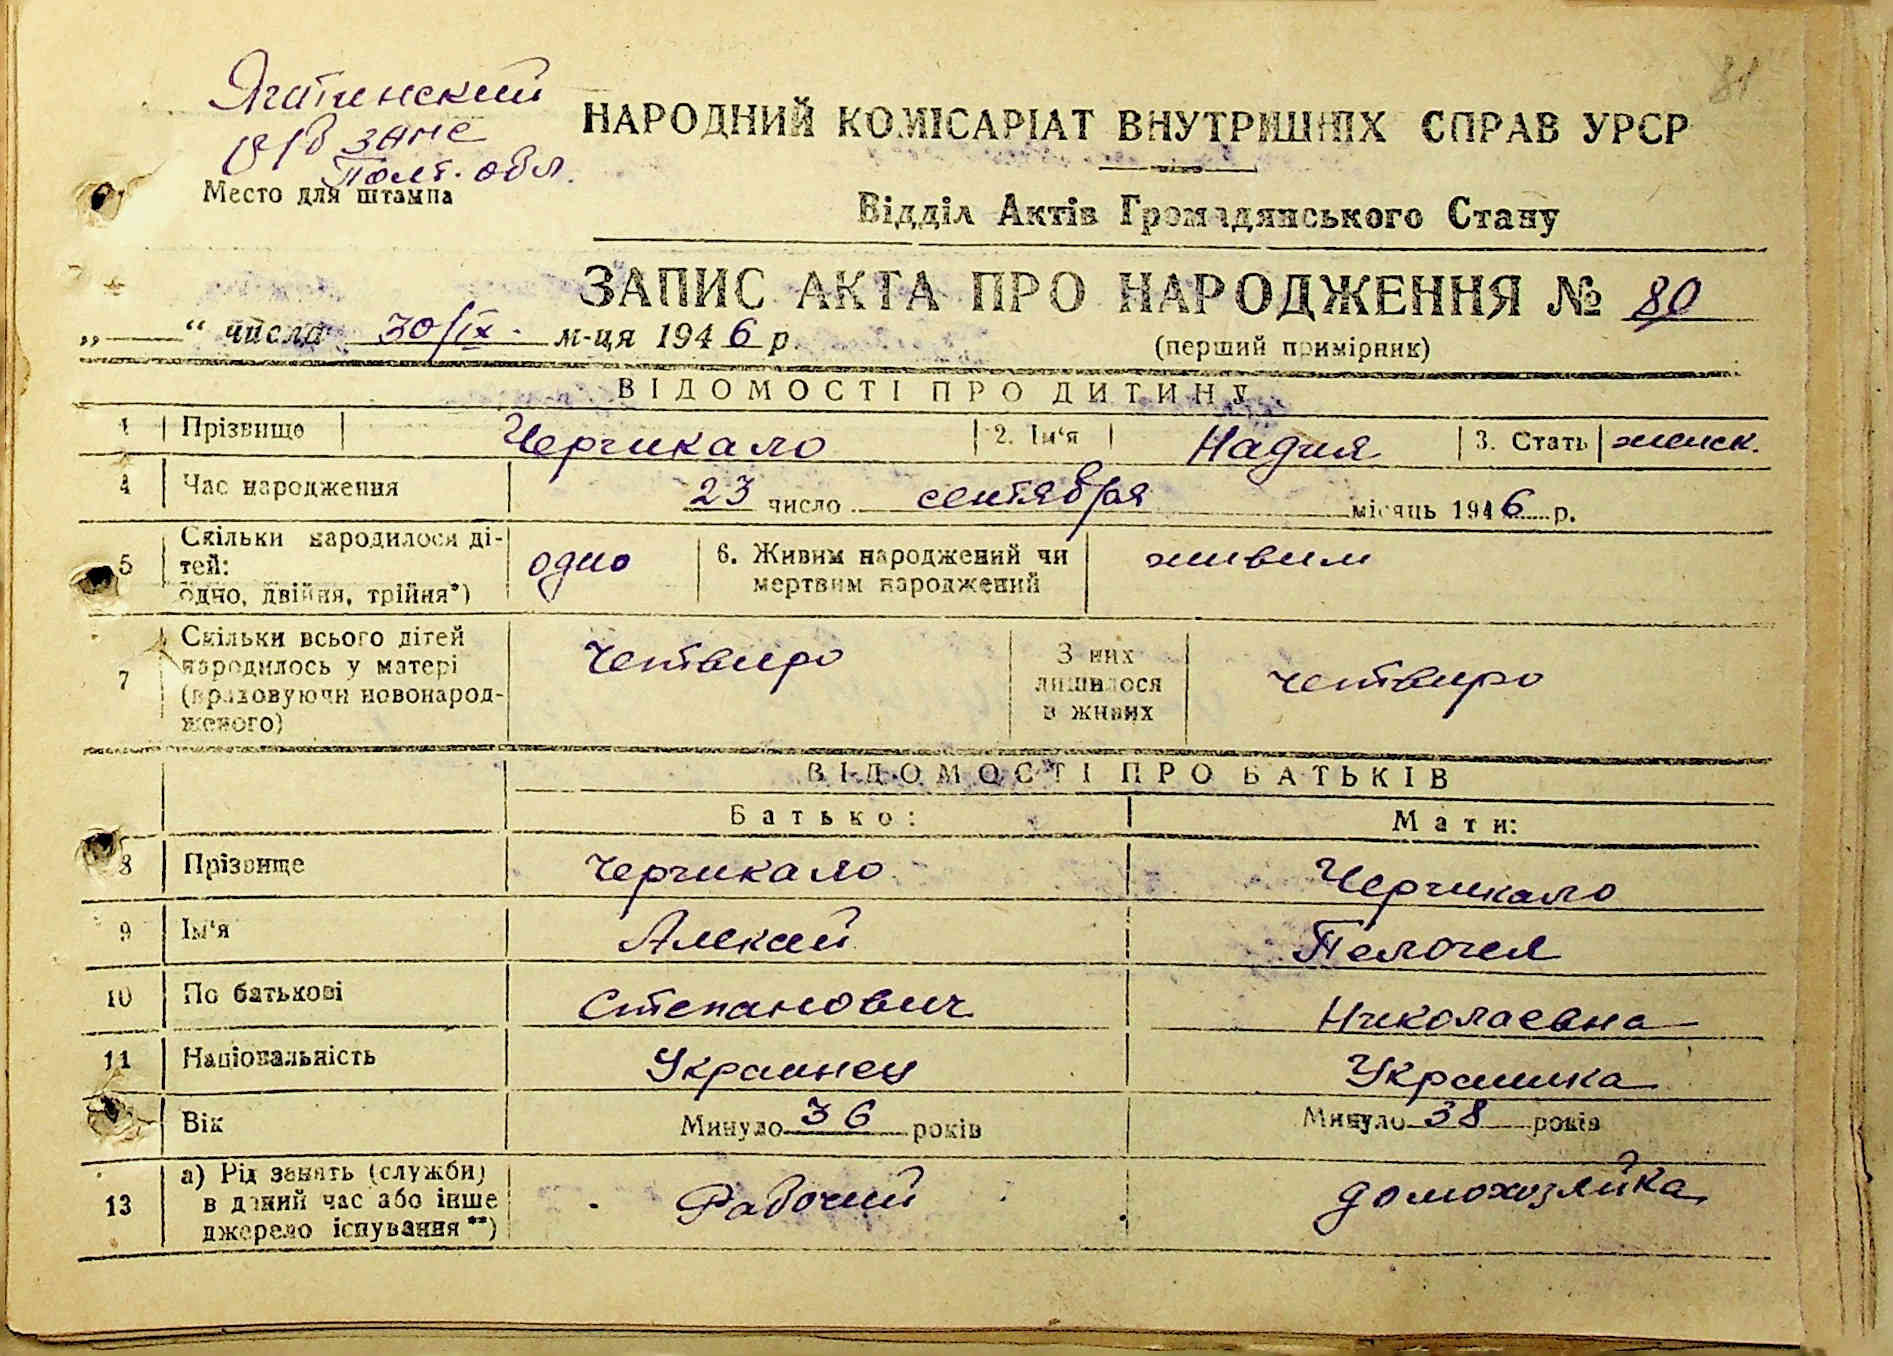 81
Яготинский
р/б ЗАГС
Полт. обл.
Место для штампа
НАРОДНИЙ КОМІСАРІАТ ВНУТРІШНІХ СПРАВ УРСР
Відділ Актів Громадянського Стану
ЗАПИС АКТА ПРО НАРОДЖЕННЯ № 80
„ “ числа 30/IX. м-ця 1946 р.
(перший примірник)
ВІДОМОСТІ ПРО ДИТИНУ
1 Прізвище Черчикало 2. Ім‘я Надия 3. Стать женск.
4 Час народження 23 число сентября місяць 1946 р.
5 Скільки народилося ді-
тей:
одно, двійня, трійня*) одно 6. Живим народжений чи
мертвим народжений живим
7 Скільки всього дітей
народилось у матері
(враховуючи новонарод-
женого) четверо З них
лишилося
в живих четверо
ВІДОМОСТІ ПРО БАТЬКІВ
Батько: Мати:
8 Прізвище Черчикало Черчикало
9 Ім‘я Алексей
10 По батькові Степанович Николаевна
11 Національність Украинец Украинка
Вік Минуло 36 років Минуло 38 років
13 а) Рід занять (служби)
в даний час або інше
джерело існування**) Рабочий домохозяйка